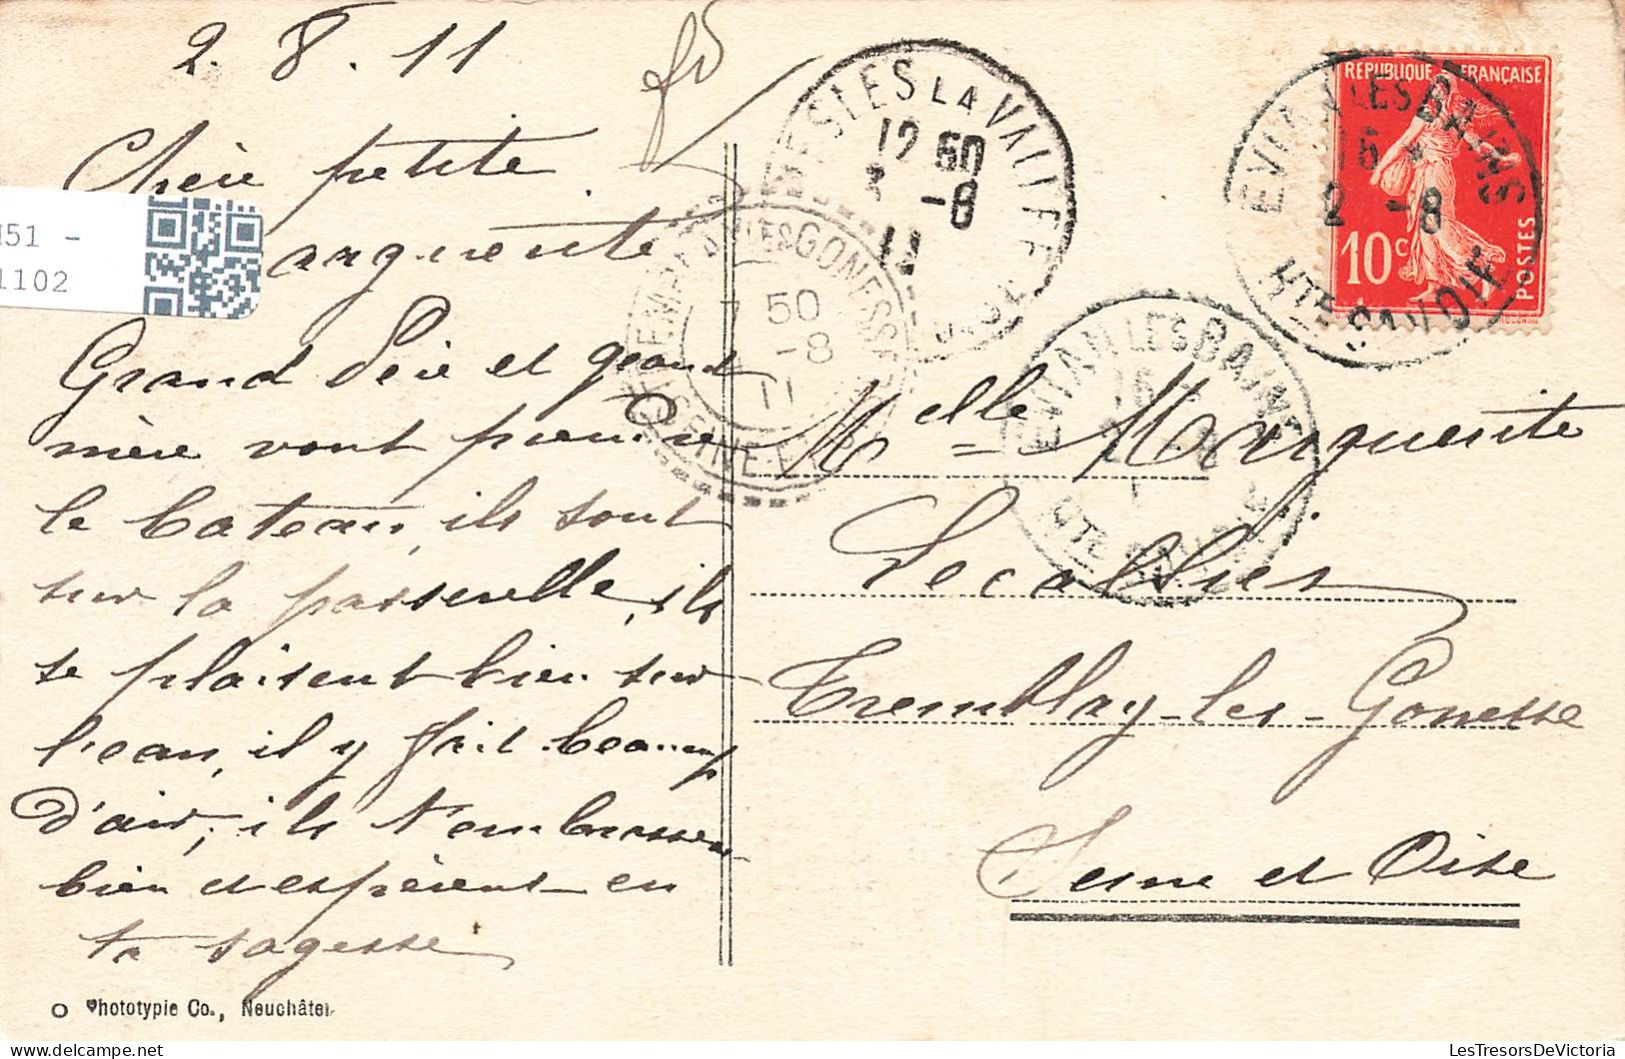 2.8.11
Chère petite
arguerite
Grand Père et grand
mère vont prendre
le bateau, ils sont
sur la passerelle, ils
se plaisent bien sur
l'eau, il y fait beaucoup
d'air, ils t'embrassent
bien et espèrent en
ta sagesse
Phototypie Co., Neuchâtel
51 -
1102
NESLES LA VALLEE
12 50
3 -8
11
GONESSE
50
-8
11
REPUBLIQUE FRANÇAISE
10c
POSTES
EVIAN LES BAINS
16
2 -8
HTE SAVOIE
EVIAN LES BAINS
16
HTE SAVOIE
Melle Marguerite
Tremblay-les-Gonesse
Seine et Oise
LesTresorsDeVictoria